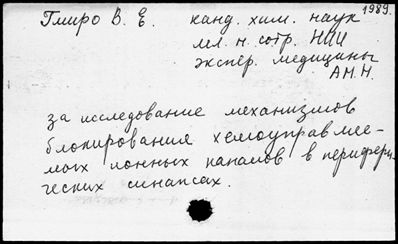 1989.
Гмиро В. Е. канд. хим. наук
мл. н. сотр. НИИ
экспер. медицины
АМН.
за исследование механизмов
блокирования хемоуправляе-
мых ионных каналов в перифери-
ческих синапсах.